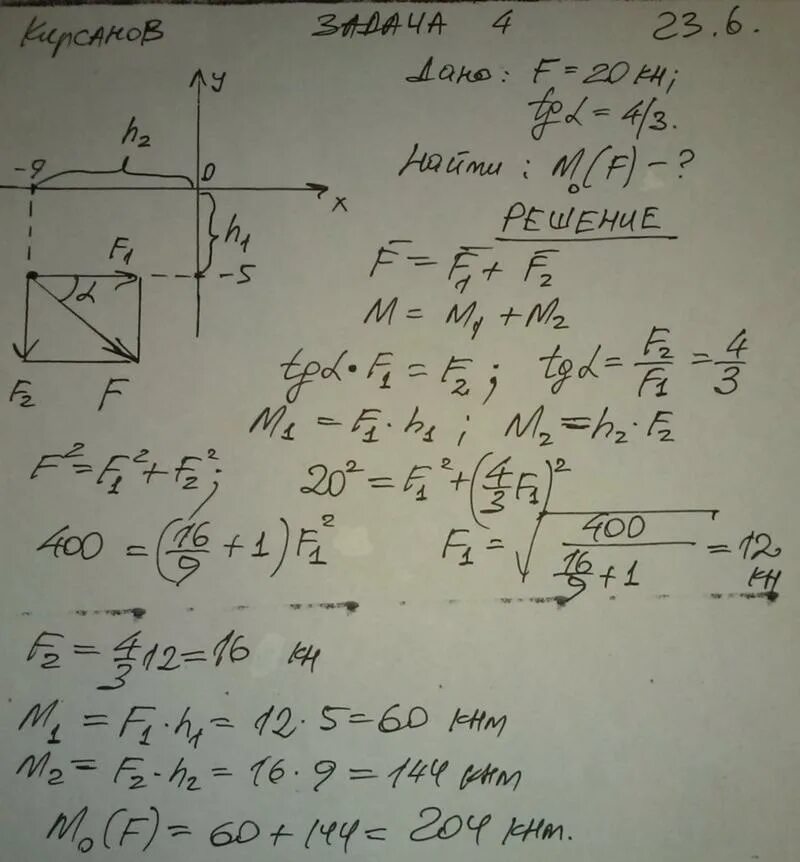 Кирсанов ЗАДАЧА 4 23.6.
Дано: F = 20 кн;
tgα = 4/3.
Найти: M₀(F) - ?
РЕШЕНИЕ
y
h₂
-9 0
x
h₁
F₁
α
-5
F₂ F
F̅ = F̅₁ + F̅₂
M = M₁ + M₂
tgα · F₁ = F₂; tgα = F₂/F₁ = 4/3
M₁ = F₁ · h₁; M₂ = h₂ · F₂
F² = F₁² + F₂²; 20² = F₁² + (4/3 F₁)²
400 = (16/9 + 1) F₁² F₁ = √(400/(16/9 + 1)) = 12 кн
F₂ = 4/3 12 = 16 кн
M₁ = F₁ · h₁ = 12 · 5 = 60 кнм
M₂ = F₂ · h₂ = 16 · 9 = 144 кнм
M₀(F) = 60 + 144 = 204 кнм.